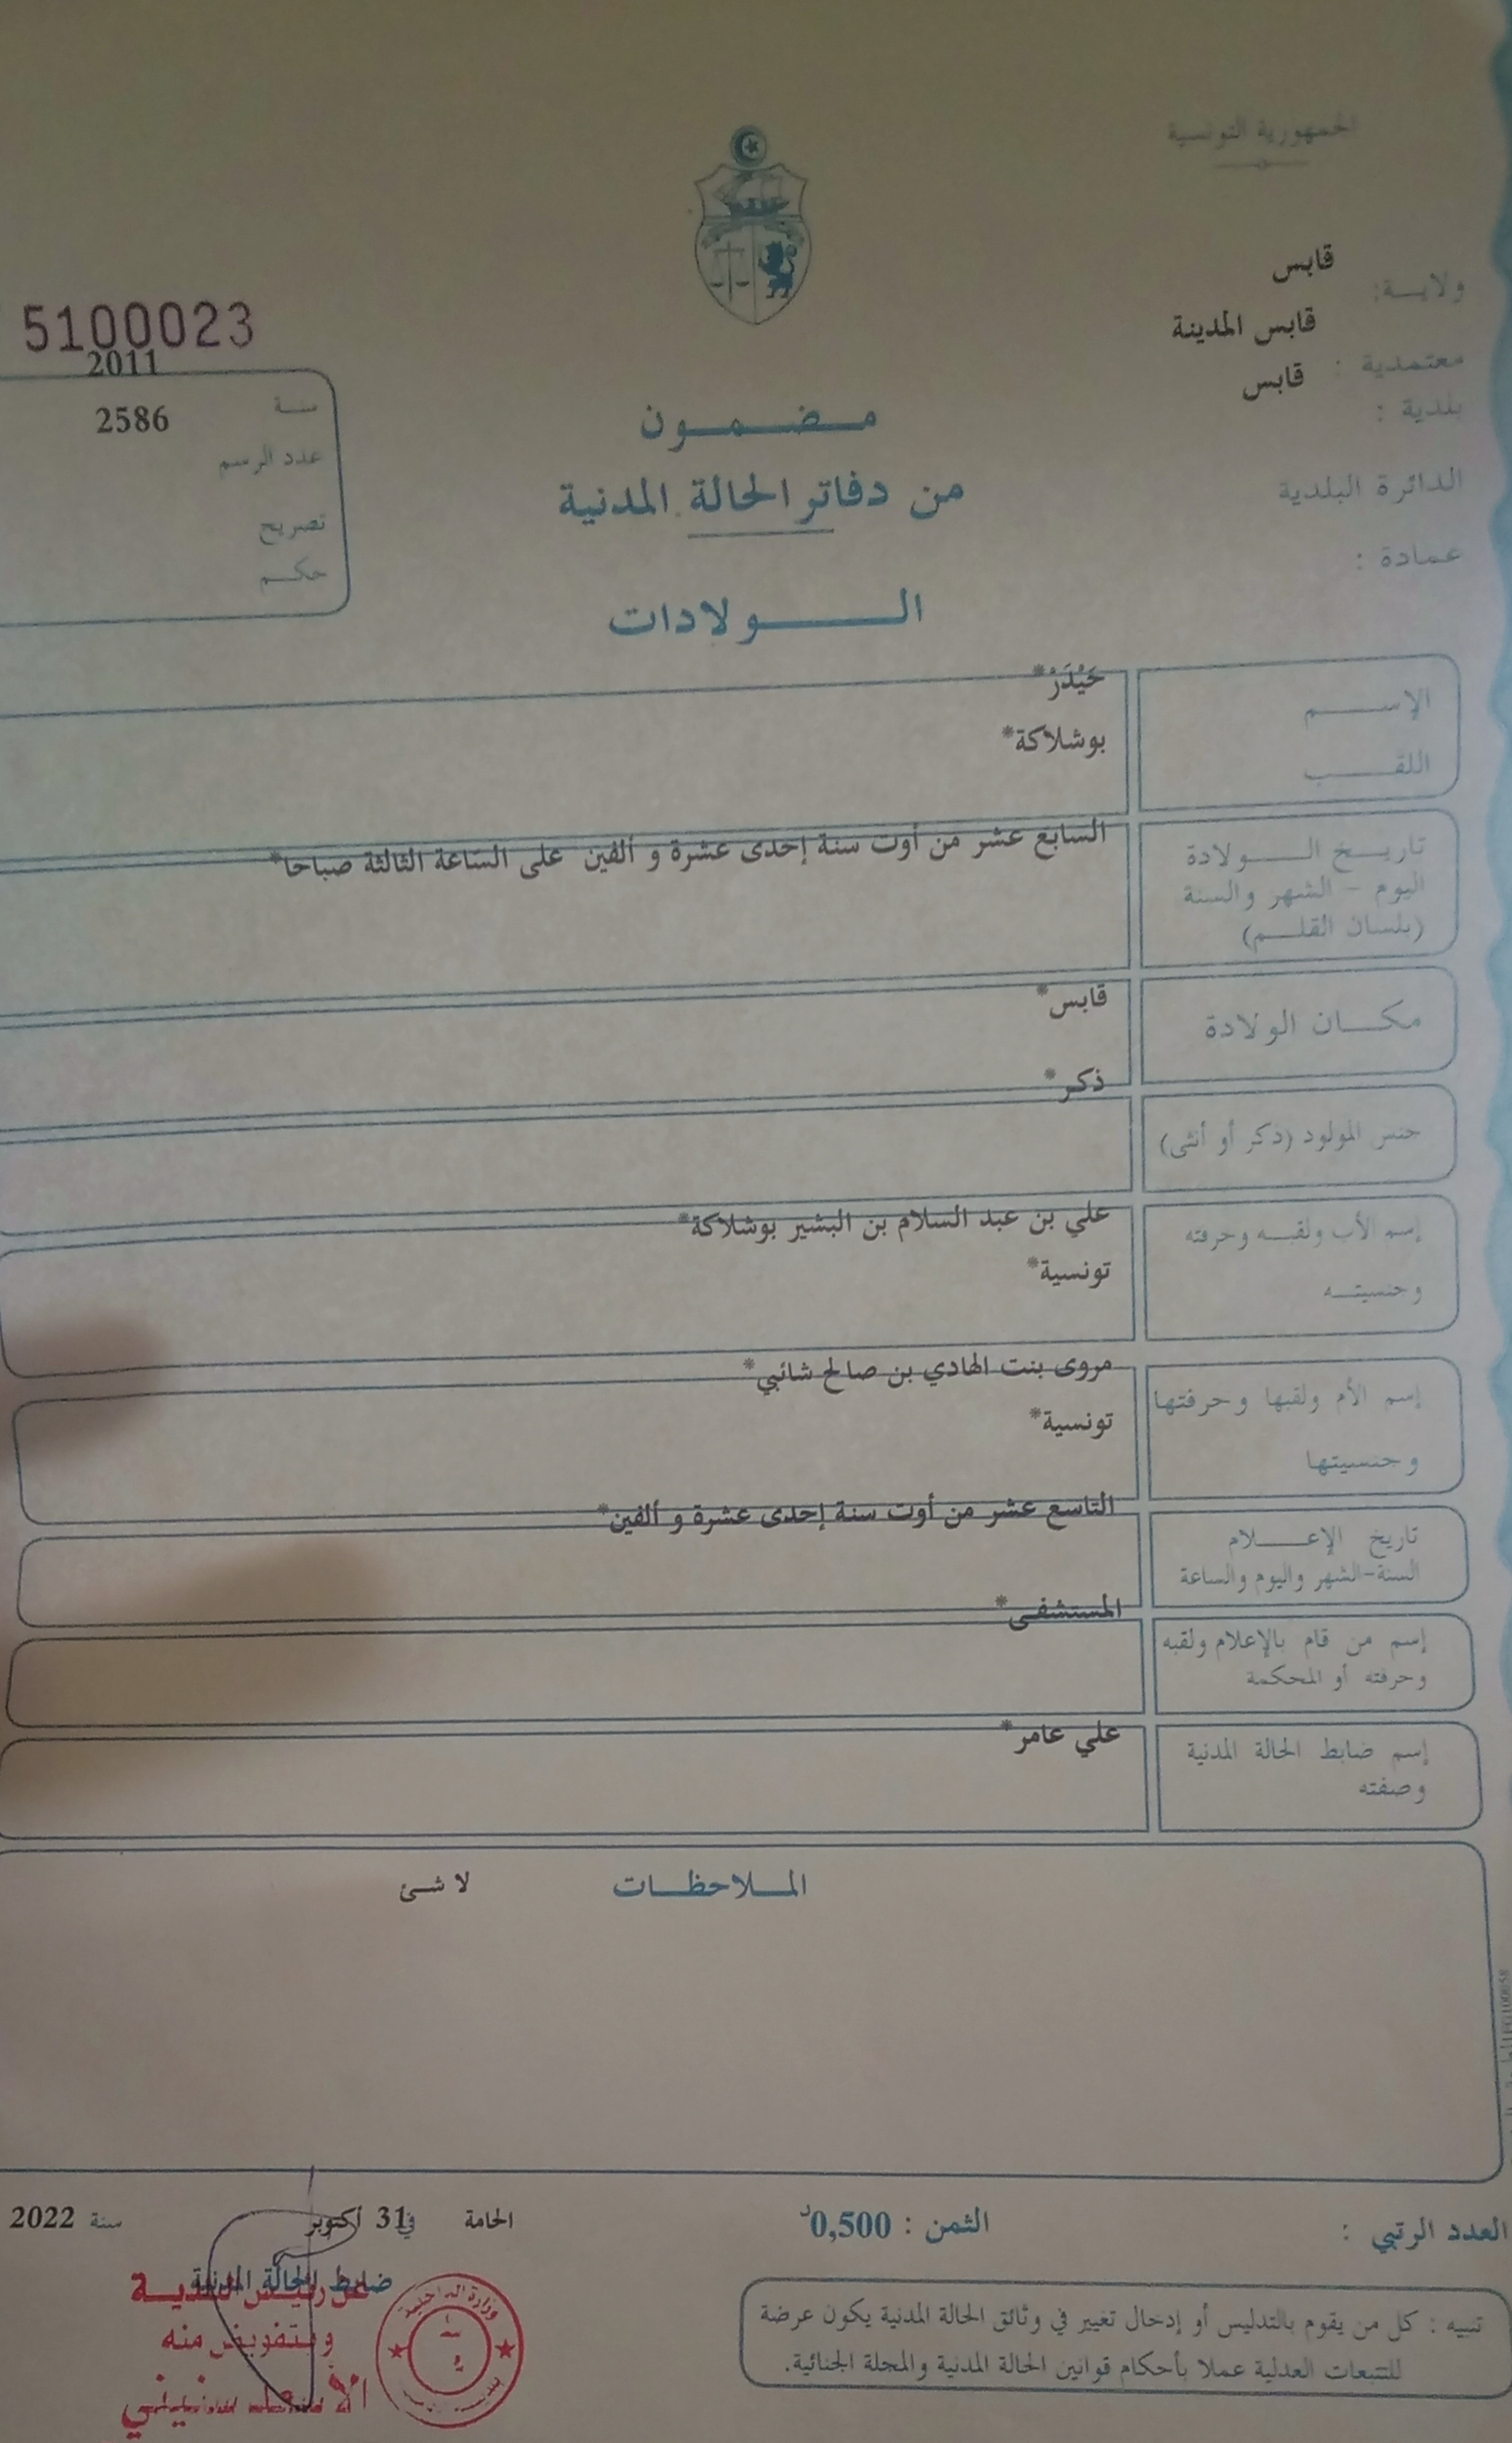 الجمهورية التونسية
ولايــة: قابس
معتمدية : قابس المدينة
بلدية : قابس
الدائرة البلدية
عمادة :
5100023
2011
سنة
2586
عدد الرسم
تصريح
حكم
مضمون
من دفاتر الحالة المدنية
الولادات
الإسم
حَيْدَرْ*
اللقب
بوشلاكة*
تاريخ الولادة
اليوم - الشهر والسنة
(بلسان القلم)
السابع عشر من أوت سنة إحدى عشرة و ألفين على الساعة الثالثة صباحا*
مكان الولادة
قابس*
ذكر*
جنس المولود (ذكر أو أنثى)
إسم الأب ولقبه وحرفته
وجنسيته
علي بن عبد السلام بن البشير بوشلاكة*
تونسية*
إسم الأم ولقبها وحرفتها
وجنسيتها
مروى بنت الهادي بن صالح شائبي*
تونسية*
تاريخ الإعلام
السنة-الشهر واليوم والساعة
التاسع عشر من أوت سنة إحدى عشرة و ألفين*
المستشفى*
إسم من قام بالإعلام ولقبه
وحرفته أو المحكمة
إسم ضابط الحالة المدنية
وصفته
علي عامر*
الملاحظات
لا شئ
العدد الرتبي :
الثمن : 0,500د
الحامة في 31 أكتوبر سنة 2022
ضابط الحالة المدنية
عن رئيس البلدية
وبتفويض منه
الأسعد سنيني
وزارة الداخلية
تنبيه : كل من يقوم بالتدليس أو إدخال تغيير في وثائق الحالة المدنية يكون عرضة
للتتبعات العدلية عملا بأحكام قوانين الحالة المدنية والمجلة الجنائية.